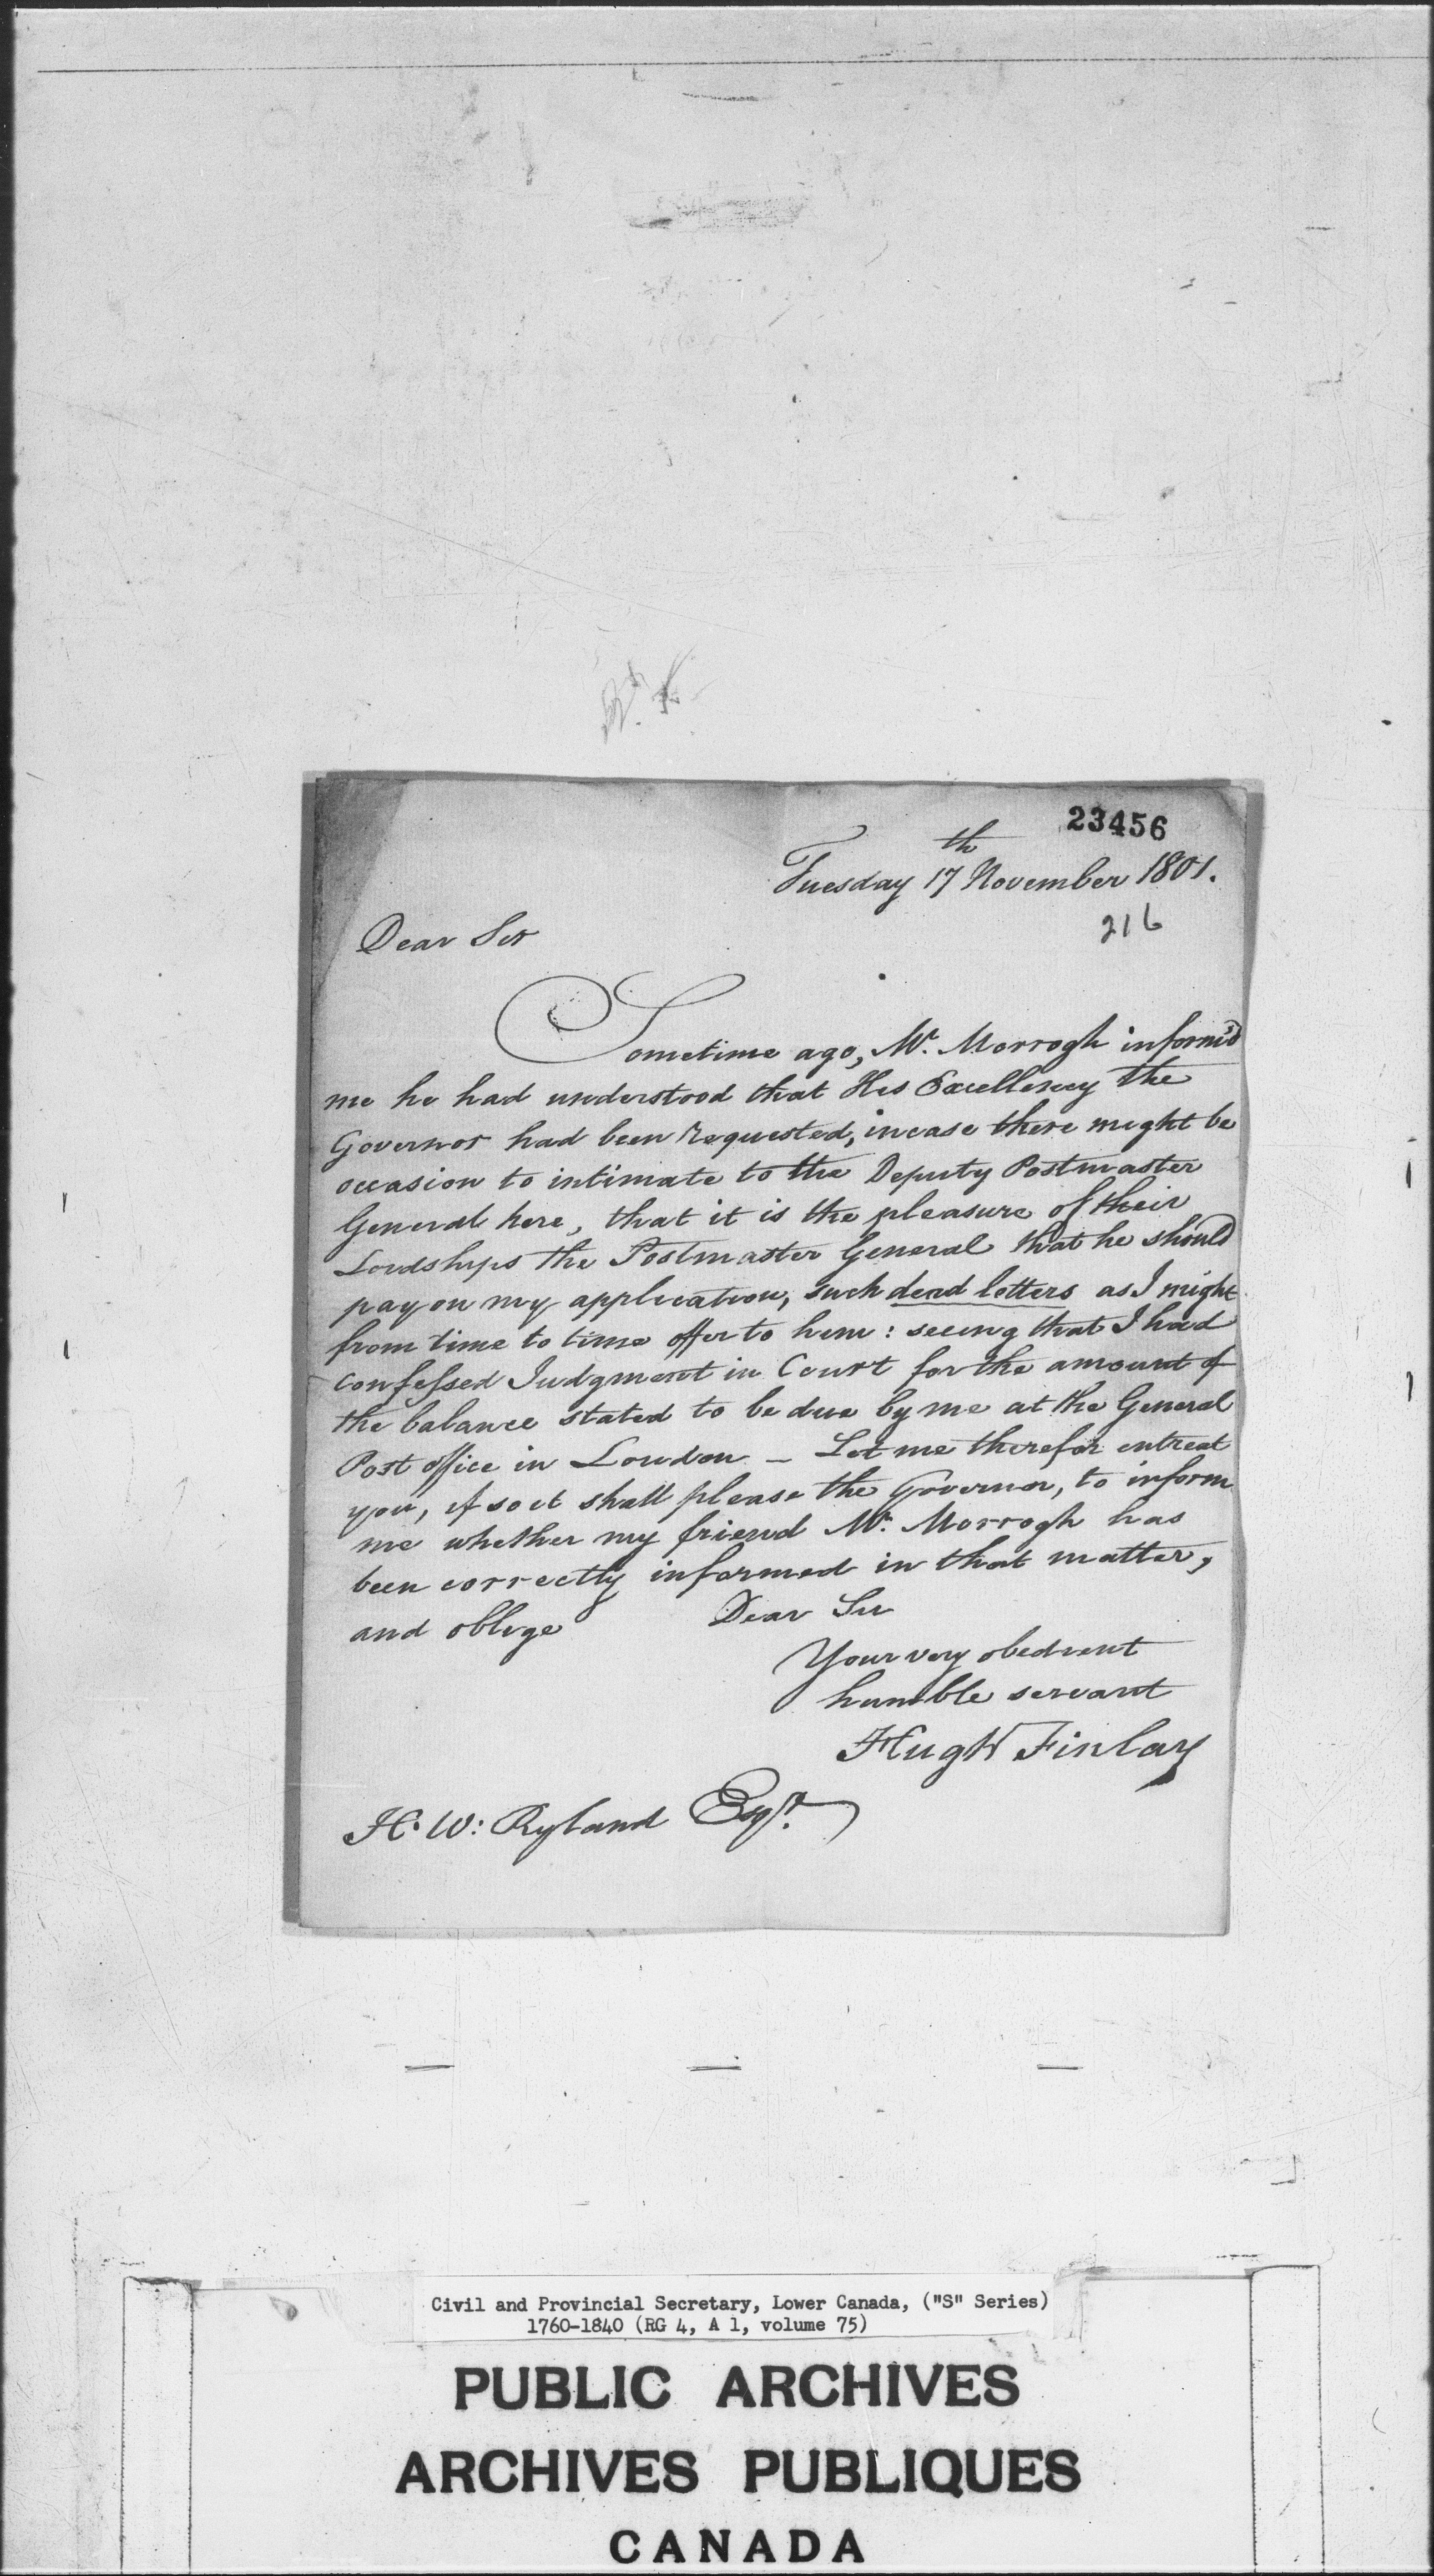 23456
Tuesday 17th November 1801.
216
Dear Sir
Sometime ago, Mr. Morrogh inform'd
me he had understood that His Excellency the
Governor had been requested, incase there might be
occasion to intimate to the Deputy Postmaster
General here, that it is the pleasure of their
Lordships the Postmaster General that he should
pay on my application, such dead letters as I might
from time to time offer to him: seeing that I had
confessed Judgment in Court for the amount of
the balance stated to be due by me at the General
Post office in London - Let me therefor entreat
you, if so it shall please the Governor, to inform
me whether my friend Mr. Morrogh has
been correctly informed in that matter,
and oblige Dear Sir
Your very obedient
humble servant
Hugh Finlay
H. W: Ryland Esqr.
Civil and Provincial Secretary, Lower Canada, ("S" Series)
1760-1840 (RG 4, A 1, volume 75)
PUBLIC ARCHIVES
ARCHIVES PUBLIQUES
CANADA